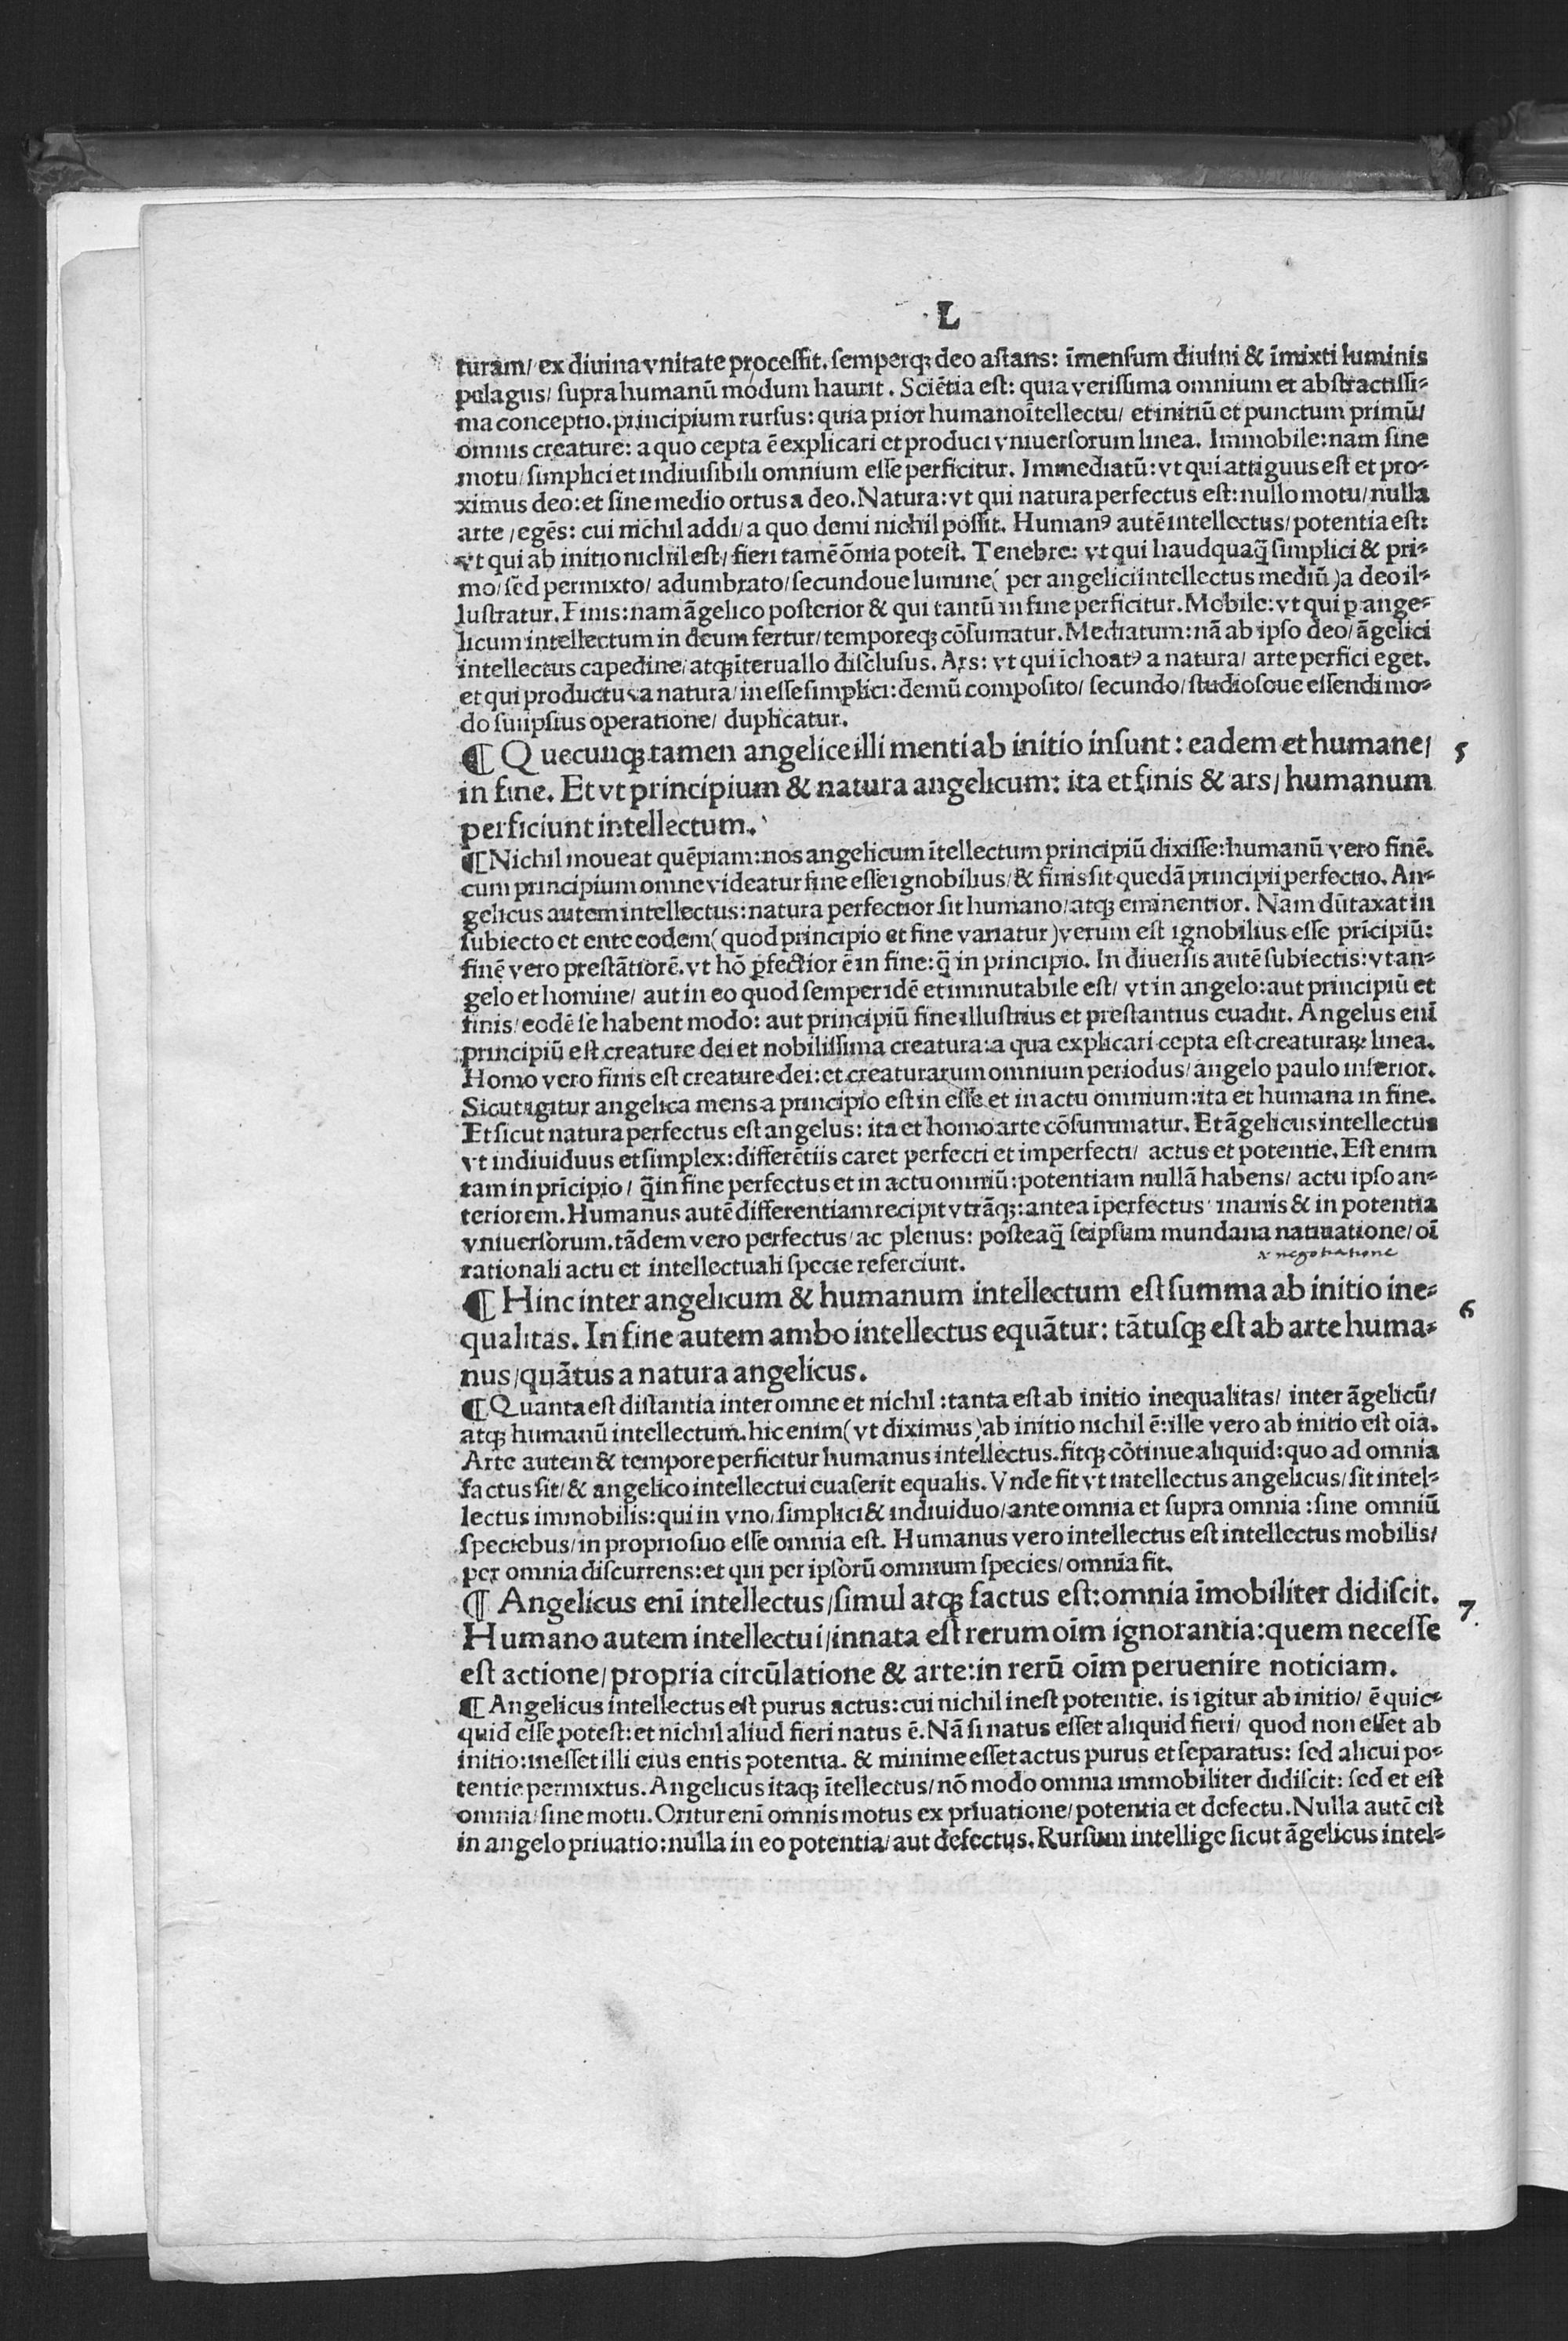 L
turam/ ex diuina vnitate processit. semperqȝ deo astans: īmensum diuini & īmixti luminis
pelagus/ supra humanū modum haurit. Sciētia est: quia verissima omnium et abstractissi-
ma conceptio. principium rursus: quia prior humano ītellectu/ et initiū et punctum primū/
omnis creature: a quo cepta ē explicari et produci vniuersorum linea. Immobile: nam sine
motu/ simplici et indiuisibili omnium esse perficitur. Immediatū: vt qui attiguus est et pro-
ximus deo: et sine medio ortus a deo. Natura: vt qui natura perfectus est: nullo motu/ nulla
arte/ egēs: cui nichil addi/ a quo demi nichil possit. Humanꝯ autē intellectus/ potentia est:
vt qui ab initio nichil est/ fieri tamē ōnia potest. Tenebre: vt qui haudquaq̄ simplici & pri-
mo/ sed permixto/ adumbrato/ secundoue lumine ( per angelici intellectus mediū ) a deo il-
lustratur. Finis: nam āgelico posterior & qui tantū in fine perficitur. Mobile: vt qui ꝑ ange-
licum intellectum in deum fertur/ temporeqȝ cōsumatur. Mediatum: nā ab ipso deo/ āgelici
intellectus capedine/ atqȝ īteruallo disclusus. Ars: vt qui īchoatꝯ a natura/ arte perfici eget.
et qui productus a natura/ in esse simplici: demū composito/ secundo/ studiosoue essendi mo-
do suiipsius operatione/ duplicatur.
¶ Quecunqȝ tamen angelice illi menti ab initio insunt: eadem et humane/ 5
in fine. Et vt principium & natura angelicum: ita et finis & ars/ humanum
perficiunt intellectum.
¶ Nichil moueat quēpiam: nos angelicum ītellectum principiū dixisse: humanū vero finē.
cum principium omne videatur fine esse ignobilius/ & finis sit quedā principii perfectio. An-
gelicus autem intellectus: natura perfectior sit humano/ atqȝ eminentior. Nam dūtaxat in
subiecto et ente eodem ( quod principio et fine variatur ) verum est ignobilius esse prīcipiū:
finē vero prestātiorē. vt hō ꝑfectior ē in fine: q̄ in principio. In diuersis autē subiectis: vt an-
gelo et homine/ aut in eo quod semper idē et immutabile est/ vt in angelo: aut principiū et
finis/ eodē se habent modo: aut principiū fine illustrius et prestantius euadit. Angelus enī
principiū est creature dei et nobilissima creatura: a qua explicari cepta est creaturaꝝ linea.
Homo vero finis est creature dei: et creaturarum omnium periodus/ angelo paulo inferior.
Sicut igitur angelica mens a principio est in esse et in actu omnium: ita et humana in fine.
Et sicut natura perfectus est angelus: ita et homo arte cōsummatur. Et āgelicus intellectus
vt indiuiduus et simplex: differētiis caret perfecti et imperfecti/ actus et potentie. Est enim
tam in prīcipio/ q̄ in fine perfectus et in actu omniū: potentiam nullā habens/ actu ipso an-
teriorem. Humanus autē differentiam recipit vtrāqȝ: antea īperfectus/ inanis & in potentia
vniuersorum. tādem vero perfectus/ ac plenus: posteaq̄ seipsum mundana natiuatione/ oī
x negotiatione
rationali actu et intellectuali specie referciuit.
¶ Hinc inter angelicum & humanum intellectum est summa ab initio ine- 6
qualitas. In fine autem ambo intellectus equātur: tātusqȝ est ab arte huma-
nus/ quātus a natura angelicus.
¶ Quanta est distantia inter omne et nichil: tanta est ab initio inequalitas/ inter āgelicū/
atqȝ humanū intellectum. hic enim ( vt diximus ) ab initio nichil ē: ille vero ab initio est oīa.
Arte autem & tempore perficitur humanus intellectus. fitqȝ cōtinue aliquid: quo ad omnia
factus sit/ & angelico intellectui euaserit equalis. Vnde fit vt intellectus angelicus/ sit intel-
lectus immobilis: qui in vno/ simplici & indiuiduo/ ante omnia et supra omnia: sine omniū
speciebus/ in proprio suo esse omnia est. Humanus vero intellectus est intellectus mobilis/
per omnia discurrens: et qui per ipsorū omnium species/ omnia fit.
¶ Angelicus enī intellectus/ simul atqȝ factus est: omnia īmobiliter didiscit. 7.
Humano autem intellectui/ innata est rerum oīm ignorantia: quem necesse
est actione/ propria circūlatione & arte: in rerū oīm peruenire noticiam.
¶ Angelicus intellectus est purus actus: cui nichil inest potentie. is igitur ab initio/ ē quic-
quid esse potest: et nichil aliud fieri natus ē. Nā si natus esset aliquid fieri/ quod non esset ab
initio: inesset illi eius entis potentia. & minime esset actus purus et separatus: sed alicui po-
tentie permixtus. Angelicus itaqȝ ītellectus/ nō modo omnia immobiliter didiscit: sed et est
omnia/ sine motu. Oritur enī omnis motus ex priuatione/ potentia et defectu. Nulla autē est
in angelo priuatio: nulla in eo potentia/ aut defectus. Rursum intellige sicut āgelicus intel-